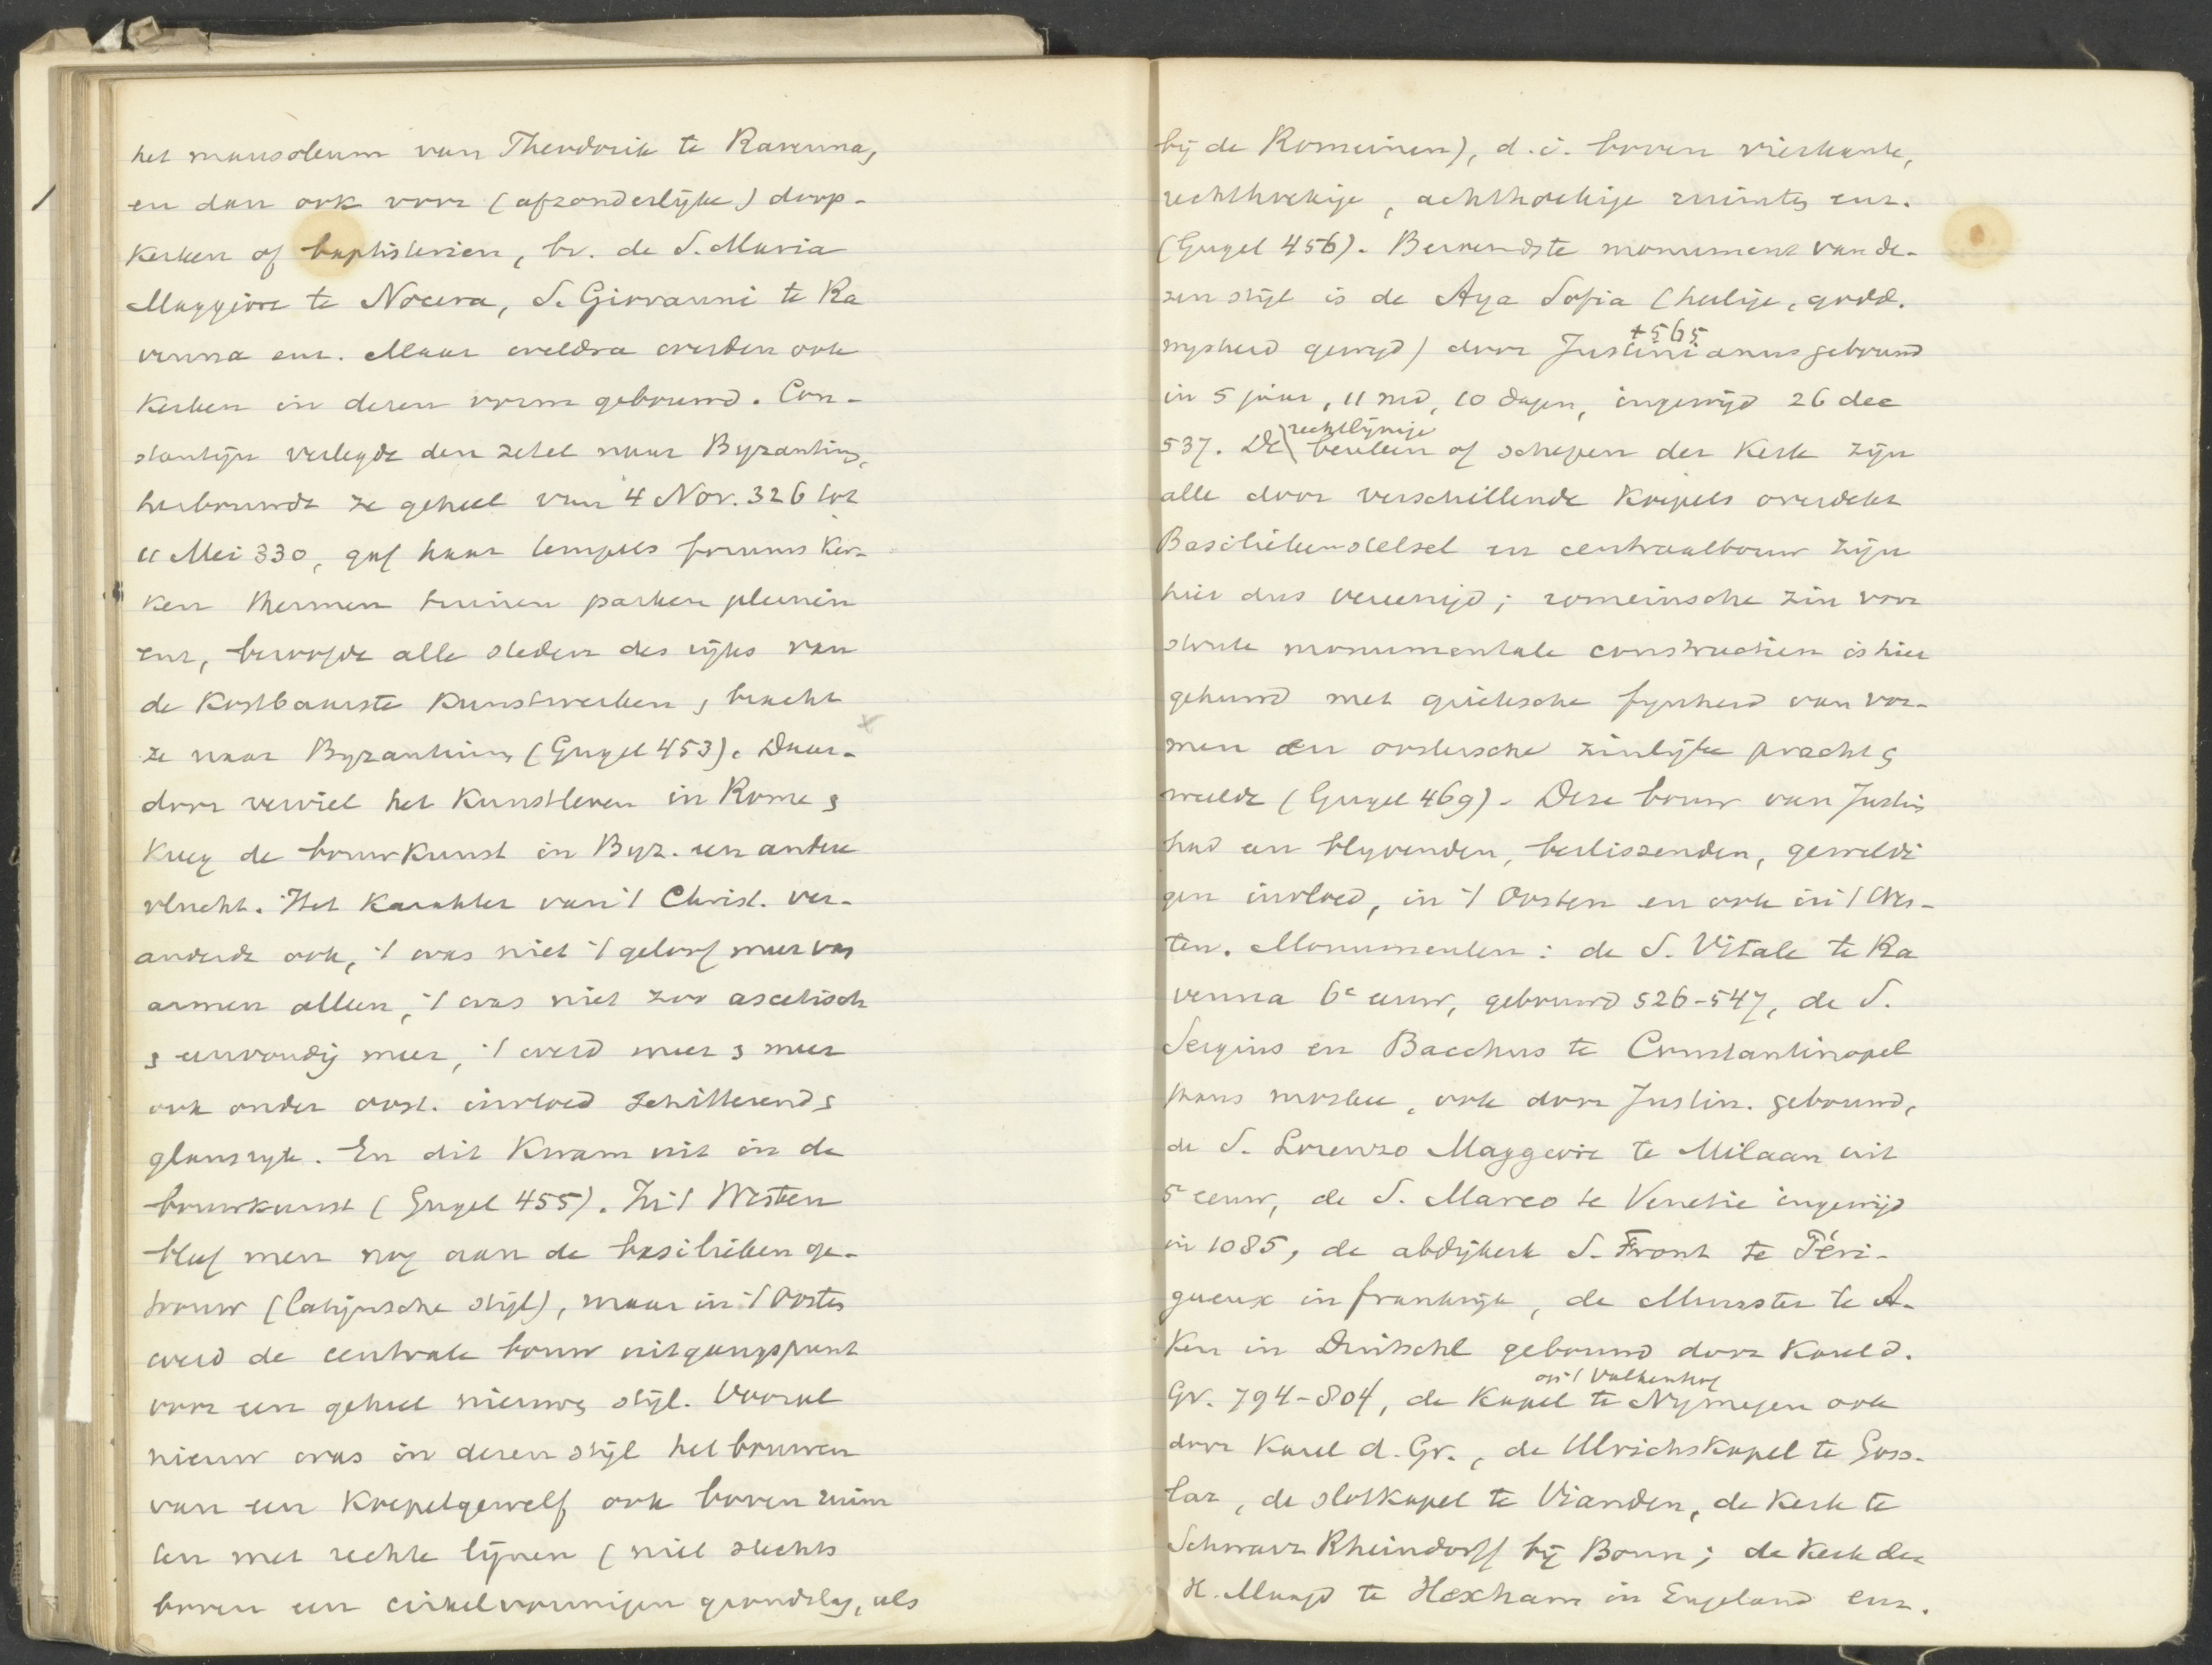 het mausoleum van Theodorik te Ravenna,
en dan ook voor (afzonderlijke) doop-
kerken of baptisterien, bv. de S. Maria
Maggiore te Nocera, S. Giovanni te Ra
venna enz. Maar weldra werden ook
kerken in dezen vorm gebouwd. Con-
stantijn verlegde den zetel naar Byzantium,
herbouwde ze geheel van 4 Nov. 326 tot
11 Mei 330, gaf haar tempels forums ker-
ken thermen tuinen parken pleinen
enz, beroofde alle steden des rijks van
de kostbaarste kunstwerken, bracht
ze naar Byzantium (Gugel 453). Daar-
door verviel het kunstleven in Rome &
kreeg de bouwkunst in Byz. een andere
vlucht. Het karakter van 't Christ. ver-
anderde ook, 't was niet 't geloof meer van
armen alleen, 't was niet zoo ascetisch
& eenvoudig meer, 't werd meer & meer
ook onder oost. invloed schitterend &
glansryk. En dit kwam uit in de
bouwkunst (Gugel 455). In 't Westen
bleef men nog aan de basilieken ge-
trouw (latijnsche stijl), maar in 't Oosten
werd de centrale bouw uitgangspunt
voor een geheel nieuwen stijl. Vooral
nieuw was in dezen stijl het bouwen
van een koepelgewelf ook boven ruim
ten met rechte lijnen (niet slechts
boven een cirkelvormigen grondslag, als
bij de Romeinen), d.i. boven vierkante,
rechthoekige, achthoekige ruimten enz.
(Gugel 456). Beroemdste monument van de-
zen stijl is de Aya Sofia (heilige, godd.
wysheid gewyd) door Justinianus gebouwd
+565
in 5 jaar, 11 md, 10 dagen, ingewijd 26 dec
537. De \ rechtlijnige beuken of schepen der kerk zijn
alle door verschillende koepels overdekt
Basiliekenstelsel en centraalbouw zijn
hier dus vereenigd; romeinsche zin voor
stoute monumentale constructien is hier
gehuwd met grieksche fynheid van vor-
men en oostersche zinlijke pracht &
weelde (Gugel 469). Deze bouw van Justin
had een blyvenden, beslissenden, geweldi
gen invloed, in 't Oosten en ook in 't Wes-
ten. Monumenten: de S. Vitale te Ra
venna 6e eeuw, gebouwd 526-547, de S.
Sergius en Bacchus te Constantinopel
thans moskee, ook door Justin. gebouwd,
de S. Lorenzo Maggiore te Milaan uit
5e eeuw, de S. Marco te Venetie ingewijd
in 1085, de abdijkerk S. Front te Péri-
gueux in frankrijk, de Munster te A-
ken in Duitschl gebouwd door Karel d.
Gr. 794-804, de kapel op 't Valkenhof te Nymegen ook
door Karel d. Gr., de Ulrichskapel te Goss-
lar, de slotkapel te Vianden, de kerk te
Schwarz Rheindorff bij Bonn; de kerk der
H. Maagd te Hexham in Engeland enz.